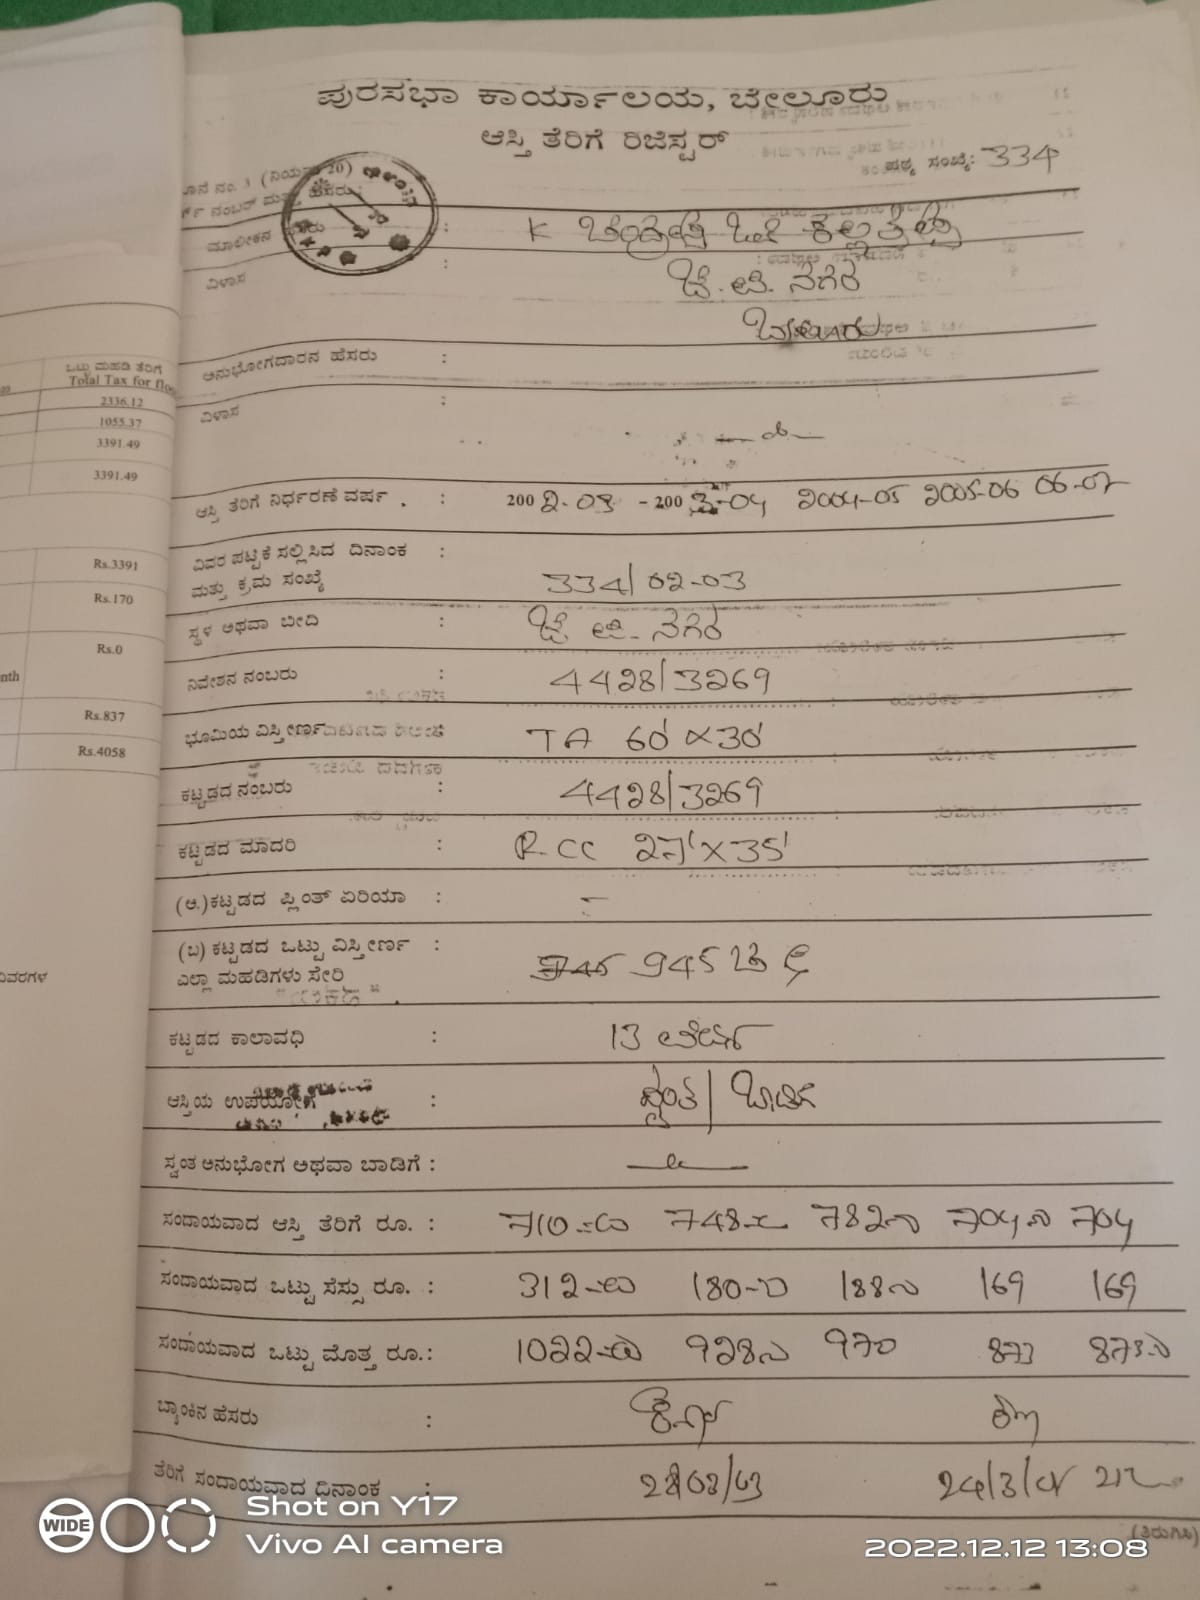 ಪುರಸಭಾ ಕಾರ್ಯಾಲಯ, ಬೇಲೂರು
ಆಸ್ತಿ ತೆರಿಗೆ ರಿಜಿಸ್ಟರ್
ಪುಟ ಸಂಖ್ಯೆ: 334
ನಂ. 3 (ನಿಯಮ 20)
ನಂಬರ್ ಮತ್ತು ಹೆಸರು
ಮಾಲೀಕನ ಹೆಸರು : K
ವಿಳಾಸ : ಜೆ. ಪಿ. ನಗರ
ಬೇಲೂರು
ಅನುಭೋಗದಾರನ ಹೆಸರು :
ವಿಳಾಸ :
ಆಸ್ತಿ ತೆರಿಗೆ ನಿರ್ಧರಣೆ ವರ್ಷ . : 200 2-03 - 200 3-04 2004-05 2005-06 06-07
ವಿವರ ಪಟ್ಟಿಕೆ ಸಲ್ಲಿಸಿದ ದಿನಾಂಕ :
ಮತ್ತು ಕ್ರಮ ಸಂಖ್ಯೆ 334/02-03
ಸ್ಥಳ ಅಥವಾ ಬೀದಿ : ಜೆ. ಪಿ. ನಗರ
ನಿವೇಶನ ನಂಬರು : 4428/3269
ಭೂಮಿಯ ವಿಸ್ತೀರ್ಣ TA 60' X 30'
ಕಟ್ಟಡದ ನಂಬರು : 4428/3269
ಕಟ್ಟಡದ ಮಾದರಿ : R.CC 27' X 35'
(ಆ.)ಕಟ್ಟಡದ ಪ್ಲಿಂತ್ ಏರಿಯಾ : -
(ಬ) ಕಟ್ಟಡದ ಒಟ್ಟು ವಿಸ್ತೀರ್ಣ :
ಎಲ್ಲಾ ಮಹಡಿಗಳು ಸೇರಿ 945 ಚ
ಕಟ್ಟಡದ ಕಾಲಾವಧಿ : 13
ಆಸ್ತಿಯ ಉಪಯೋಗ : ಸ್ವಂತ /
ಸ್ವಂತ ಅನುಭೋಗ ಅಥವಾ ಬಾಡಿಗೆ :
ಸಂದಾಯವಾದ ಆಸ್ತಿ ತೆರಿಗೆ ರೂ. : 710 748 782 704 704
ಸಂದಾಯವಾದ ಒಟ್ಟು ಸೆಸ್ಸು ರೂ. : 312 180 188 169 169
ಸಂದಾಯವಾದ ಒಟ್ಟು ಮೊತ್ತ ರೂ.: 1022 928 970 873 873
ಬ್ಯಾಂಕಿನ ಹೆಸರು :
ತೆರಿಗೆ ಸಂದಾಯವಾದ ದಿನಾಂಕ :
(ತಿರುಗಿಸಿ)
ಒಟ್ಟು ಮಹಡಿ ತೆರಿಗೆ
Total Tax for
2336.12
1055.37
3391.49
3391.49
Rs.3391
Rs.170
Rs.0
Rs.837
Rs.4058
WIDE
Shot on Y17
Vivo AI camera
2022.12.12 13:08